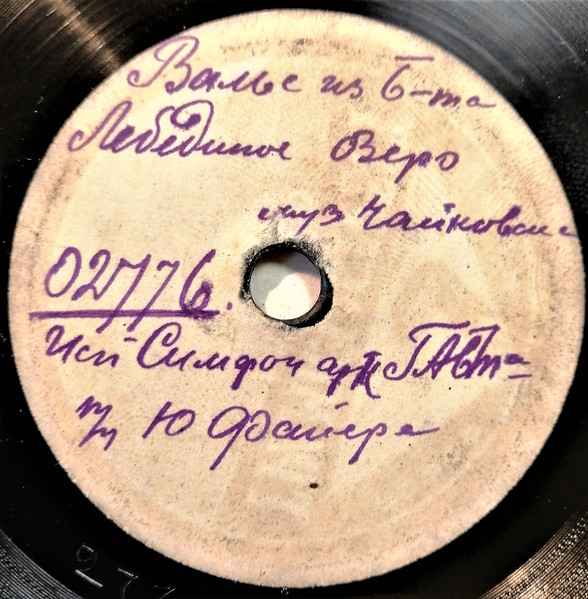 Вальс из Б-та
Лебединое Озеро
муз Чайковског
02776.
Исп Симфон орк ГАБТа
п/у Ю Файера
277